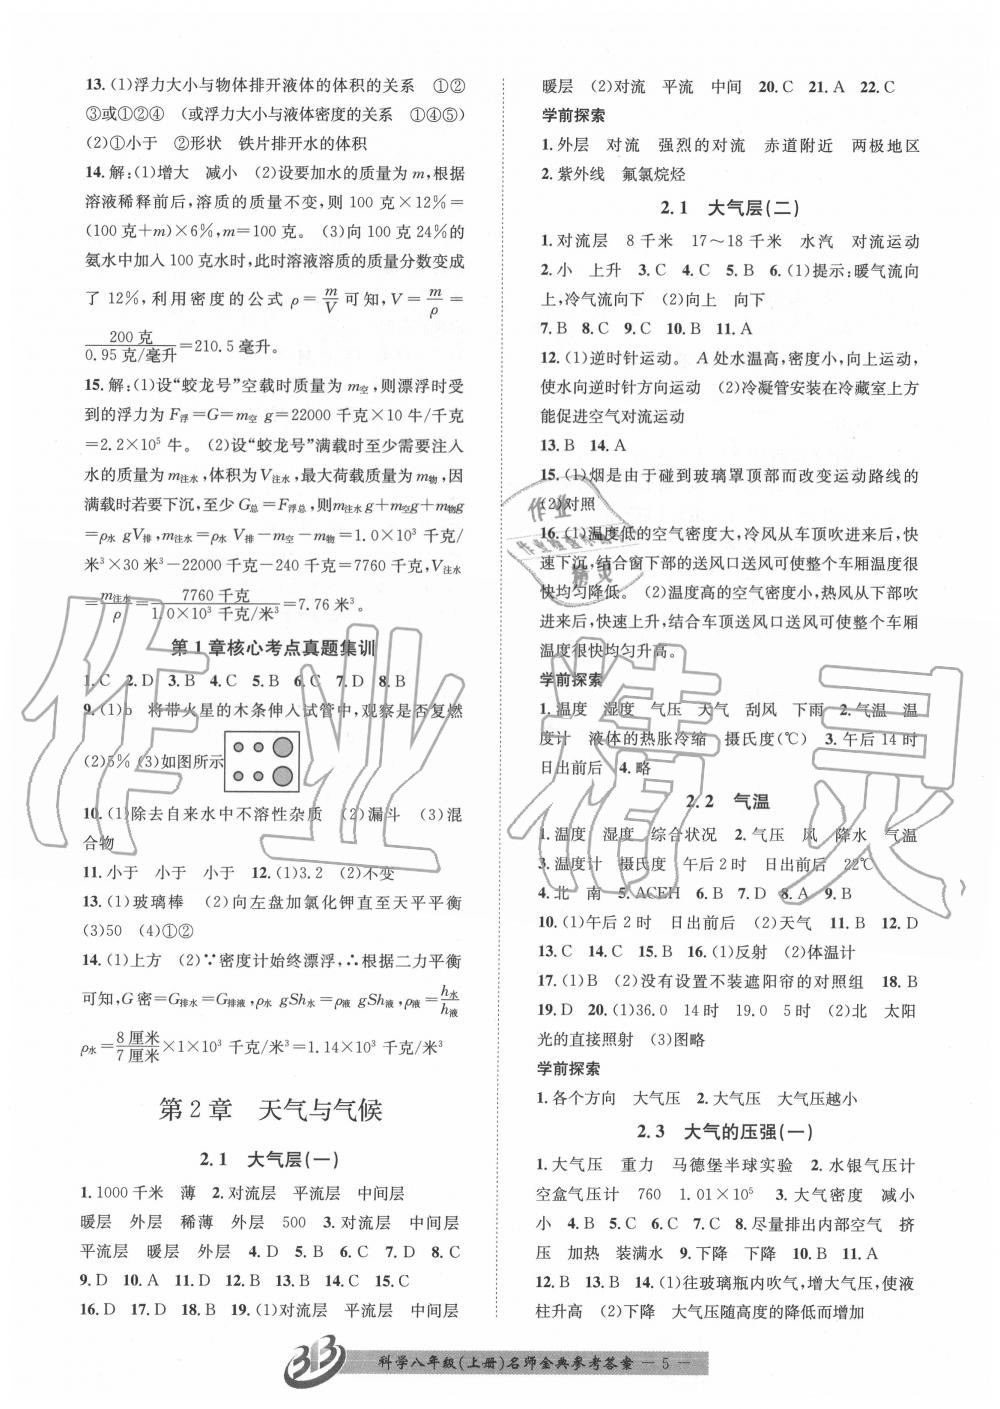 13.(1)浮力大小与物体排开液体的体积的关系　①②
③或①②④　(或浮力大小与液体密度的关系　①④⑤)
(2)①小于　②形状　铁片排开水的体积
14.解:(1)增大　减小　(2)设要加水的质量为m,根据
溶液稀释前后,溶质的质量不变,则 100 克×12%=
(100 克+m)×6%,m=100 克。　(3)向 100 克24%的
氨水中加入 100 克水时,此时溶液溶质的质量分数变成
了 12%,利用密度的公式 ρ=m/V 可知,V=m/ρ=
200 克/0.95 克/毫升=210.5 毫升。
15.解:(1)设“蛟龙号”空载时质量为 m空,则漂浮时受
到的浮力为 F浮=G=m空 g=22000 千克×10 牛/千克
=2.2×10⁵ 牛。　(2)设“蛟龙号”满载时至少需要注入
水的质量为m注水,体积为V注水,最大荷载质量为m物,因
满载时若要下沉,至少 G总=F浮总,则m注水g+m空g+m物g
=ρ水 gV排,m注水=ρ水 V排-m空-m物=1.0×10³ 千克/
米³×30 米³-22000 千克-240 千克=7760 千克,V注水
=m注水/ρ=7760 千克/1.0×10³ 千克/米³=7.76 米³。
第 1 章核心考点真题集训
1.C　2.D　3.B　4.C　5.B　6.C　7.D　8.B
9.(1)b　将带火星的木条伸入试管中,观察是否复燃
(2)5%　(3)如图所示
10.(1)除去自来水中不溶性杂质　(2)漏斗　(3)混
合物
11.小于　小于　小于　12.(1)3.2　(2)不变
13.(1)玻璃棒　(2)向左盘加氯化钾直至天平平衡
(3)50　(4)①②
14.(1)上方　(2)∵密度计始终漂浮,∴根据二力平衡
可知,G密=G排水=G排液,ρ水 gSh水=ρ液 gSh液,ρ液=h水/h液
ρ水=8 厘米/7 厘米×1×10³ 千克/米³=1.14×10³ 千克/米³
第 2 章　天气与气候
2.1　大气层(一)
1.1000 千米　薄　2.对流层　平流层　中间层
暖层　外层　稀薄　外层　500　3.对流层　中间层
平流层　暖层　外层　4.D　5.D　6.B　7.D　8.C
9.D　10.A　11.D　12.B　13.B　14.B　15.C
16.D　17.D　18.B　19.(1)对流层　平流层　中间层
暖层　(2)对流　平流　中间　20.C　21.A　22.C
学前探索
1.外层　对流　强烈的对流　赤道附近　两极地区
2.紫外线　氟氯烷烃
2.1　大气层(二)
1.对流层　8 千米　17~18 千米　水汽　对流运动
2.小　上升　3.C　4.C　5.B　6.(1)提示:暖气流向
上,冷气流向下　(2)向上　向下
7.B　8.C　9.C　10.B　11.A
12.(1)逆时针运动。　A 处水温高,密度小,向上运动,
使水向逆时针方向运动　(2)冷凝管安装在冷藏室上方
能促进空气对流运动
13.B　14.A
15.(1)烟是由于碰到玻璃罩顶部而改变运动路线的
(2)对照
16.(1)温度低的空气密度大,冷风从车顶吹进来后,快
速下沉,结合窗下部的送风口送风可使整个车厢温度很
快均匀降低。　(2)温度高的空气密度小,热风从下部吹
进来后,快速上升,结合车顶送风口送风可使整个车厢
温度很快均匀升高。
学前探索
1.温度　湿度　气压　天气　刮风　下雨　2.气温　温
度计　液体的热胀冷缩　摄氏度(℃)　3.午后 14 时
日出前后　4.略
2.2　气温
1.温度　湿度　综合状况　2.气压　风　降水　气温
3.温度计　摄氏度　午后 2 时　日出前后　22℃
4.北　南　5.ACEH　6.B　7.D　8.A　9.B
10.(1)午后 2 时　日出前后　(2)天气　11.B　12.D
13.C　14.C　15.B　16.(1)反射　(2)体温计
17.(1)B　(2)没有设置不装遮阳帘的对照组　18.B
19.D　20.(1)36.0　14 时　19.0　5 时　(2)北　太阳
光的直接照射　(3)图略
学前探索
1.各个方向　大气压　2.大气压　大气压越小
2.3　大气的压强(一)
1.大气压　重力　马德堡半球实验　2.水银气压计
空盒气压计　760　1.01×10⁵　3.大气密度　减小
小　4.B　5.C　6.B　7.C　8.尽量排出内部空气　挤
压　加热　装满水　9.下降　下降　10.B　11.A
12.B　13.B　14.(1)往玻璃瓶内吹气,增大气压,使液
柱升高　(2)下降　大气压随高度的降低而增加
科学八年级(上册)名师金典参考答案 — 5 —
作业精灵